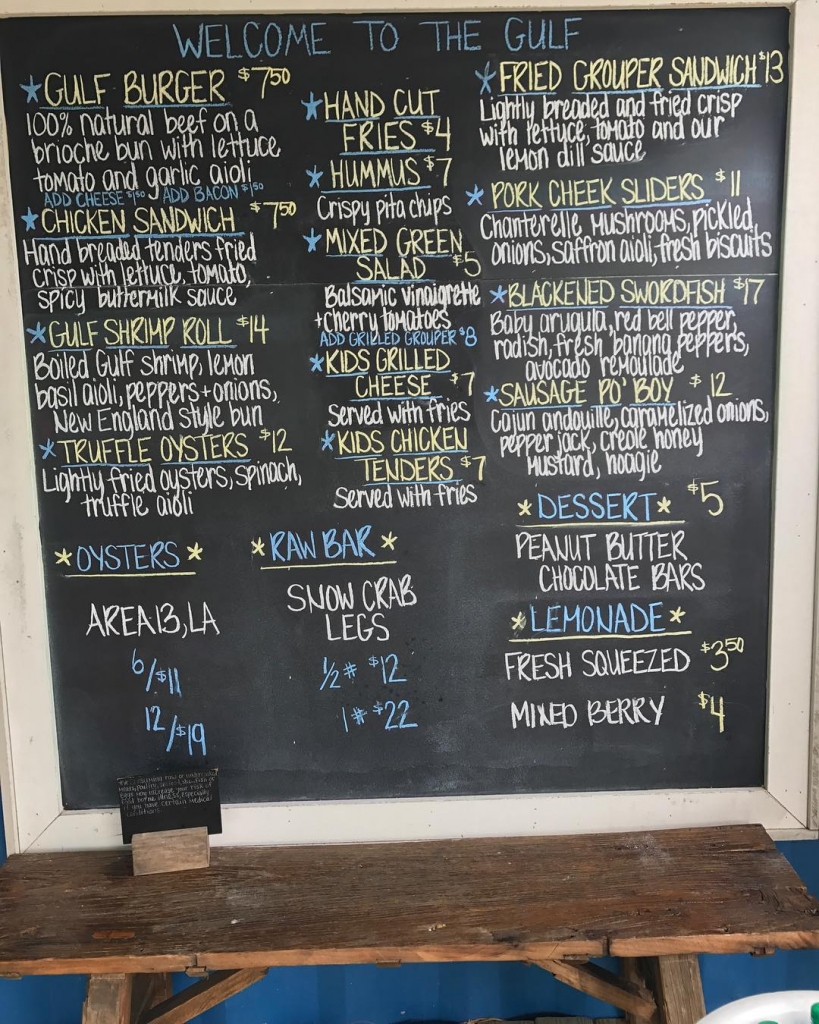 WELCOME TO THE GULF
*GULF BURGER $7.50
100% natural beef on a
brioche bun with lettuce
tomato and garlic aioli
ADD CHEESE $1.50 ADD BACON $1.50
*CHICKEN SANDWICH $7.50
Hand breaded tenders fried
crisp with lettuce, tomato,
spicy buttermilk sauce
*GULF SHRIMP ROLL $14
Boiled Gulf shrimp, lemon
basil aioli, peppers + onions,
New England style bun
*TRUFFLE OYSTERS $12
Lightly fried oysters, spinach,
truffle aioli
*HAND CUT
FRIES $4
*HUMMUS $7
Crispy pita chips
*MIXED GREEN
SALAD $5
Balsamic vinaigrette
+cherry tomatoes
ADD GRILLED GROUPER $8
*KIDS GRILLED
CHEESE $7
served with fries
*KIDS CHICKEN
TENDERS $7
Served with fries
*FRIED GROUPER SANDWICH $13
Lightly breaded and fried crisp
with lettuce, tomato and our
lemon dill sauce
*PORK CHEEK SLIDERS $11
Chanterelle mushrooms, pickled
onions, saffron aioli, fresh biscuits
*BLACKENED SWORDFISH $17
Baby arugula, red bell pepper,
radish, fresh banana peppers,
avocado remoulade
*SAUSAGE PO' BOY $12
Cajun andouille, caramelized onions,
pepper jack, creole honey
mustard, hoagie
*OYSTERS*
AREA 13, LA
6/$11
12/$19
*RAW BAR*
SNOW CRAB
LEGS
1/2 # $12
1 # $22
*DESSERT* $5
PEANUT BUTTER
CHOCOLATE BARS
*LEMONADE*
FRESH SQUEEZED $3.50
MIXED BERRY $4
consuming raw or undercooked
may increase your risk of
illness, especially
if you have certain medical
conditions